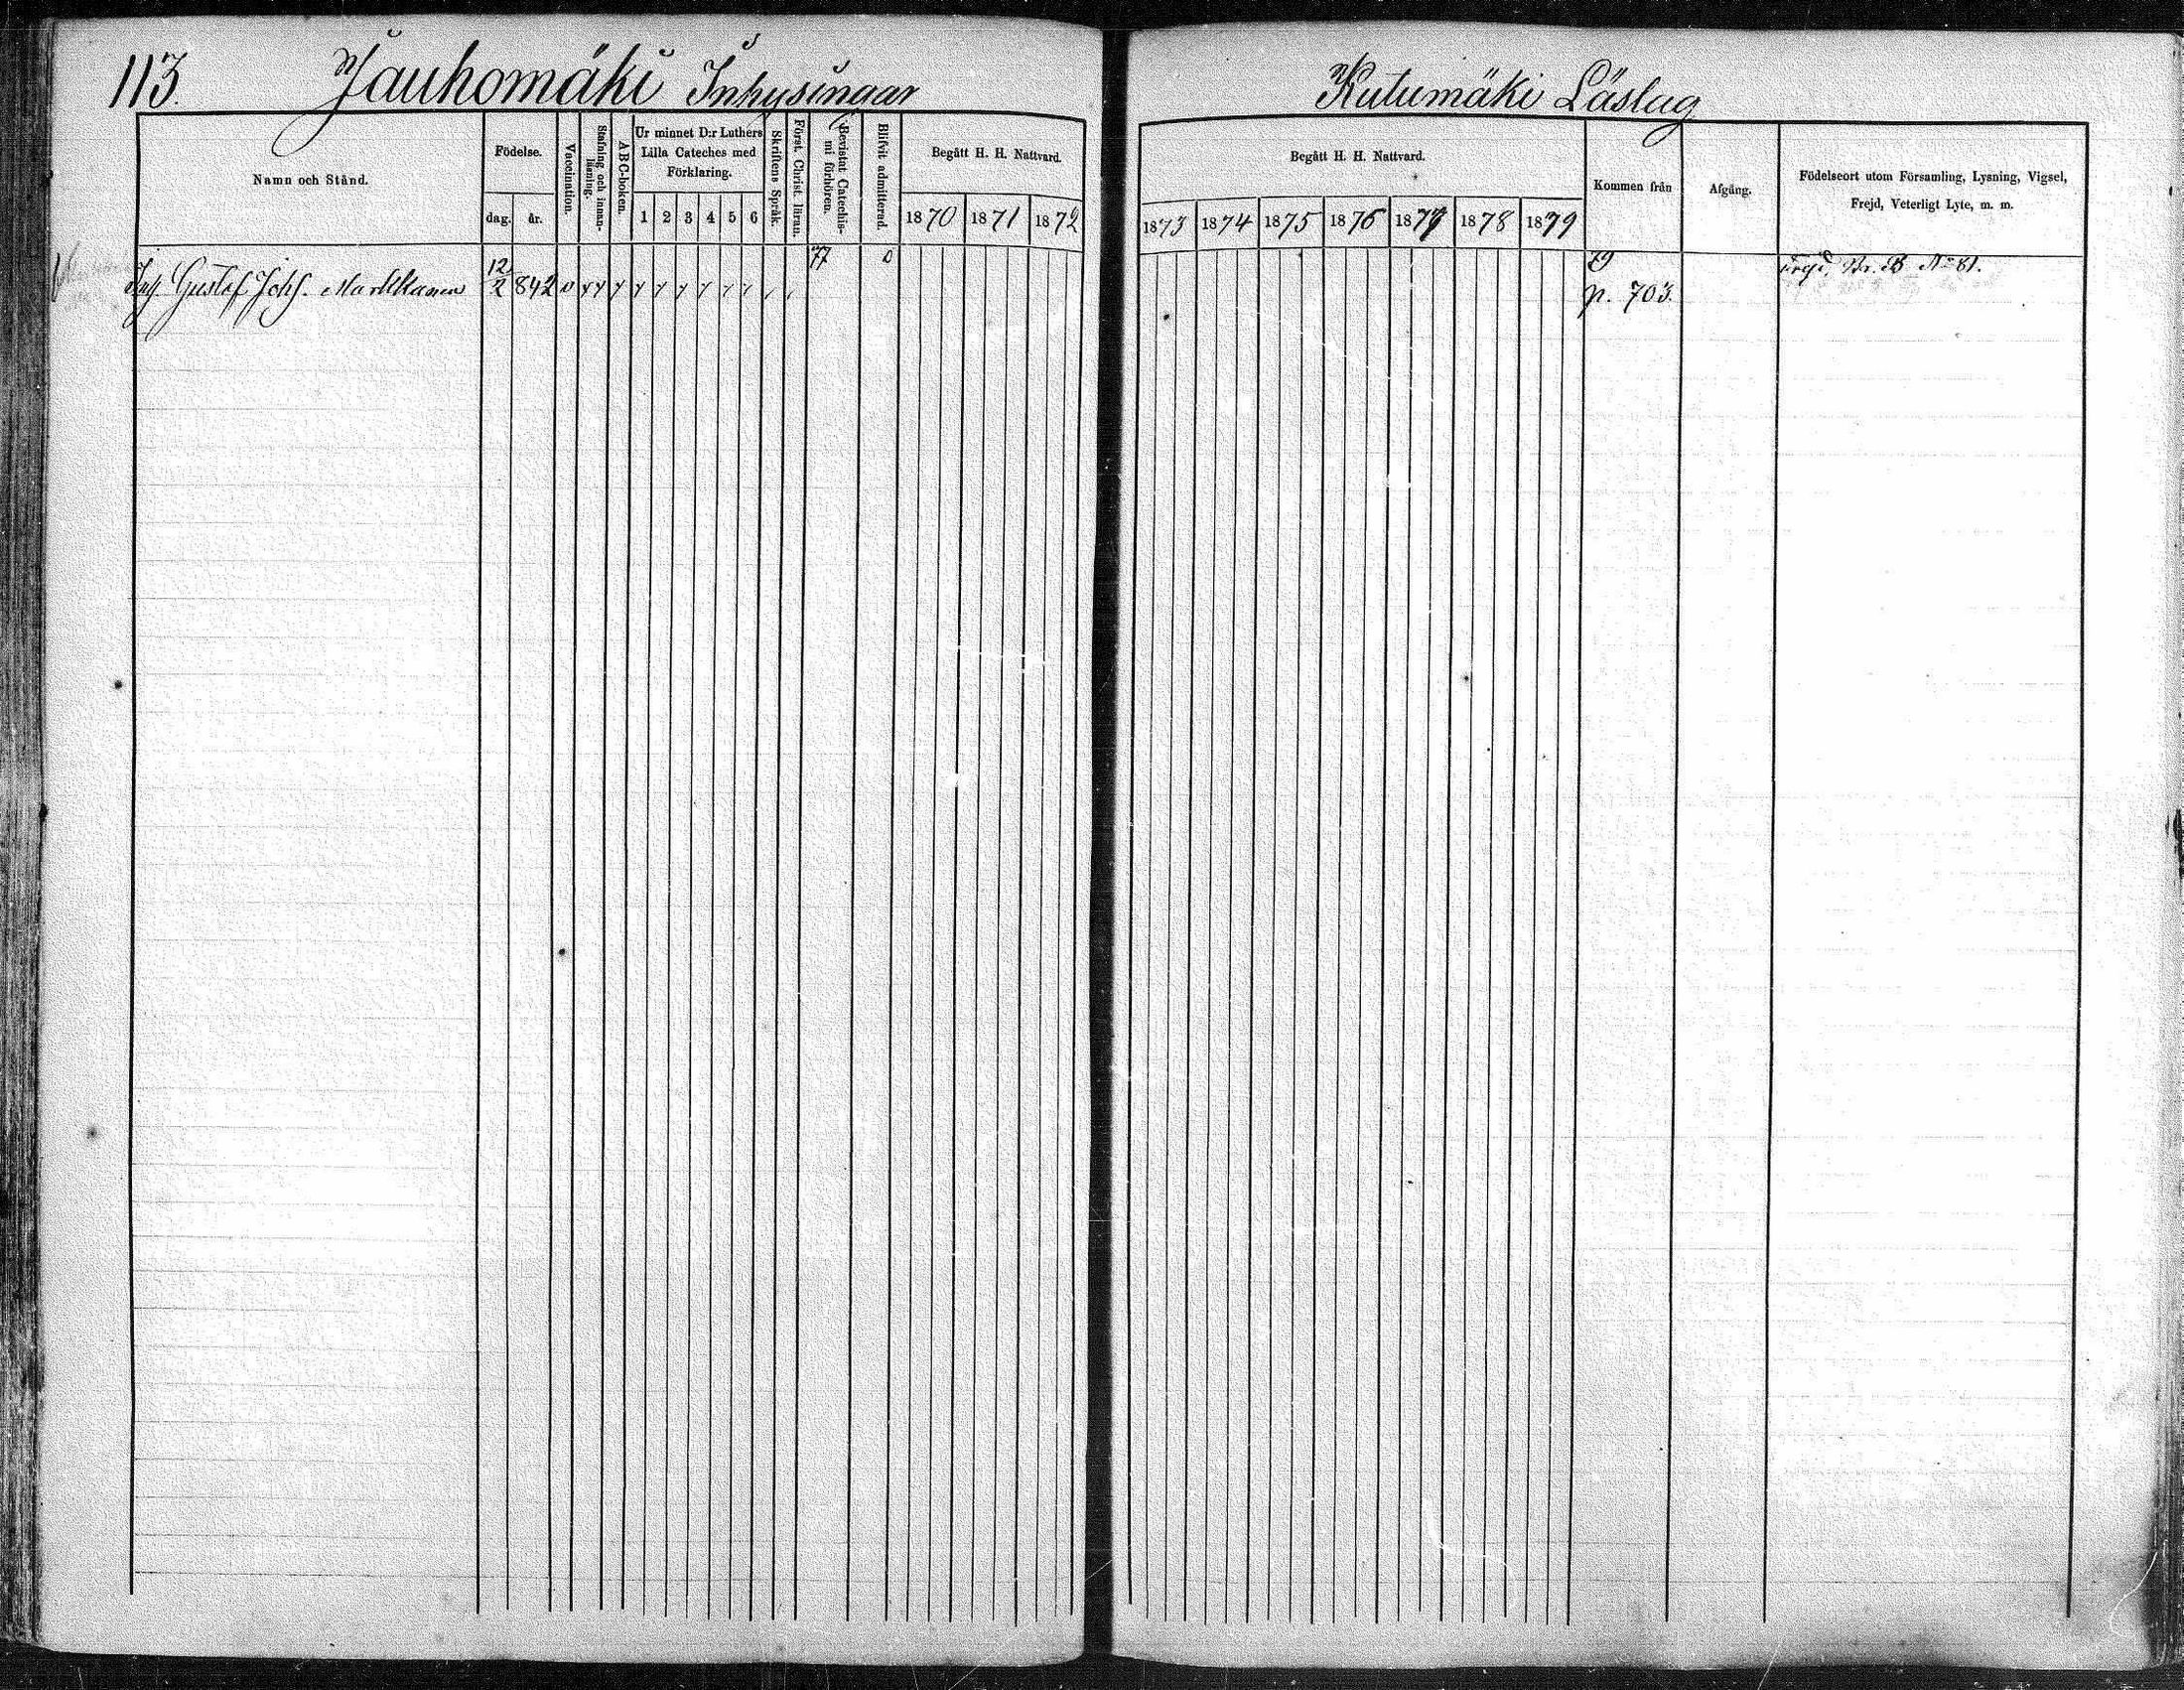 113.
Jauhomäki Inhysingar
Kutumäki Läslag
Namn och Stånd.
Födelse.
dag. år.
Vaccination.
Stafning och innan-
läsning.
ABC-boken.
Ur minnet D:r Luthers
Lilla Cateches med
Förklaring.
1 2 3 4 5 6
Skriftens Språk.
Först. Christ. läran.
Bevistat Catechis-
mi förhören.
Blifvit admitterad.
Begått H. H. Nattvard.
1870 1871 1872
Begått H. H. Nattvard.
1873 1874 1875 1876 1877 1878 1879
Kommen från
Afgång.
Födelseort utom Församling, Lysning, Vigsel,
Frejd, Veterligt Lyte, m. m.
Inh. Gustaf Johs. Markkanen 12/2 842
77
p. 703.
B No 81.